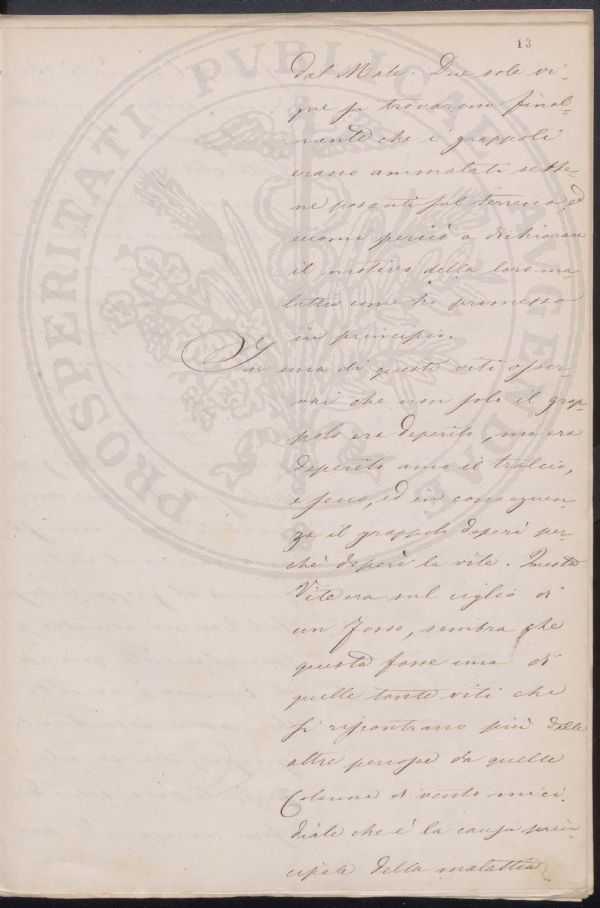 13
dal Male. Due sole vi-
gne si trovarono final-
mente che i grappoli
erano ammalati sebbe-
ne posanti sul terreno, ed
eccomi perciò a dichiarare
il motivo della loro ma-
lattia come ho promesso
in principio.
In una di queste viti osser-
vai che non solo il grap-
polo era deperito, ma era
deperito anco il tralcio,
e secco, ed in conseguen-
za il grappolo deperì per-
chè deperì la vite. Questa
Vite era sul ciglio di
un fosso, sembra che
questa fosse una di
quelle tante viti che
si riscontrano più delle
altre percosse da quelle
Colonne di vento mici-
diale che è la causa prin-
cipale della malattia
PROSPERITATI PVBLICAE AVGENDAE